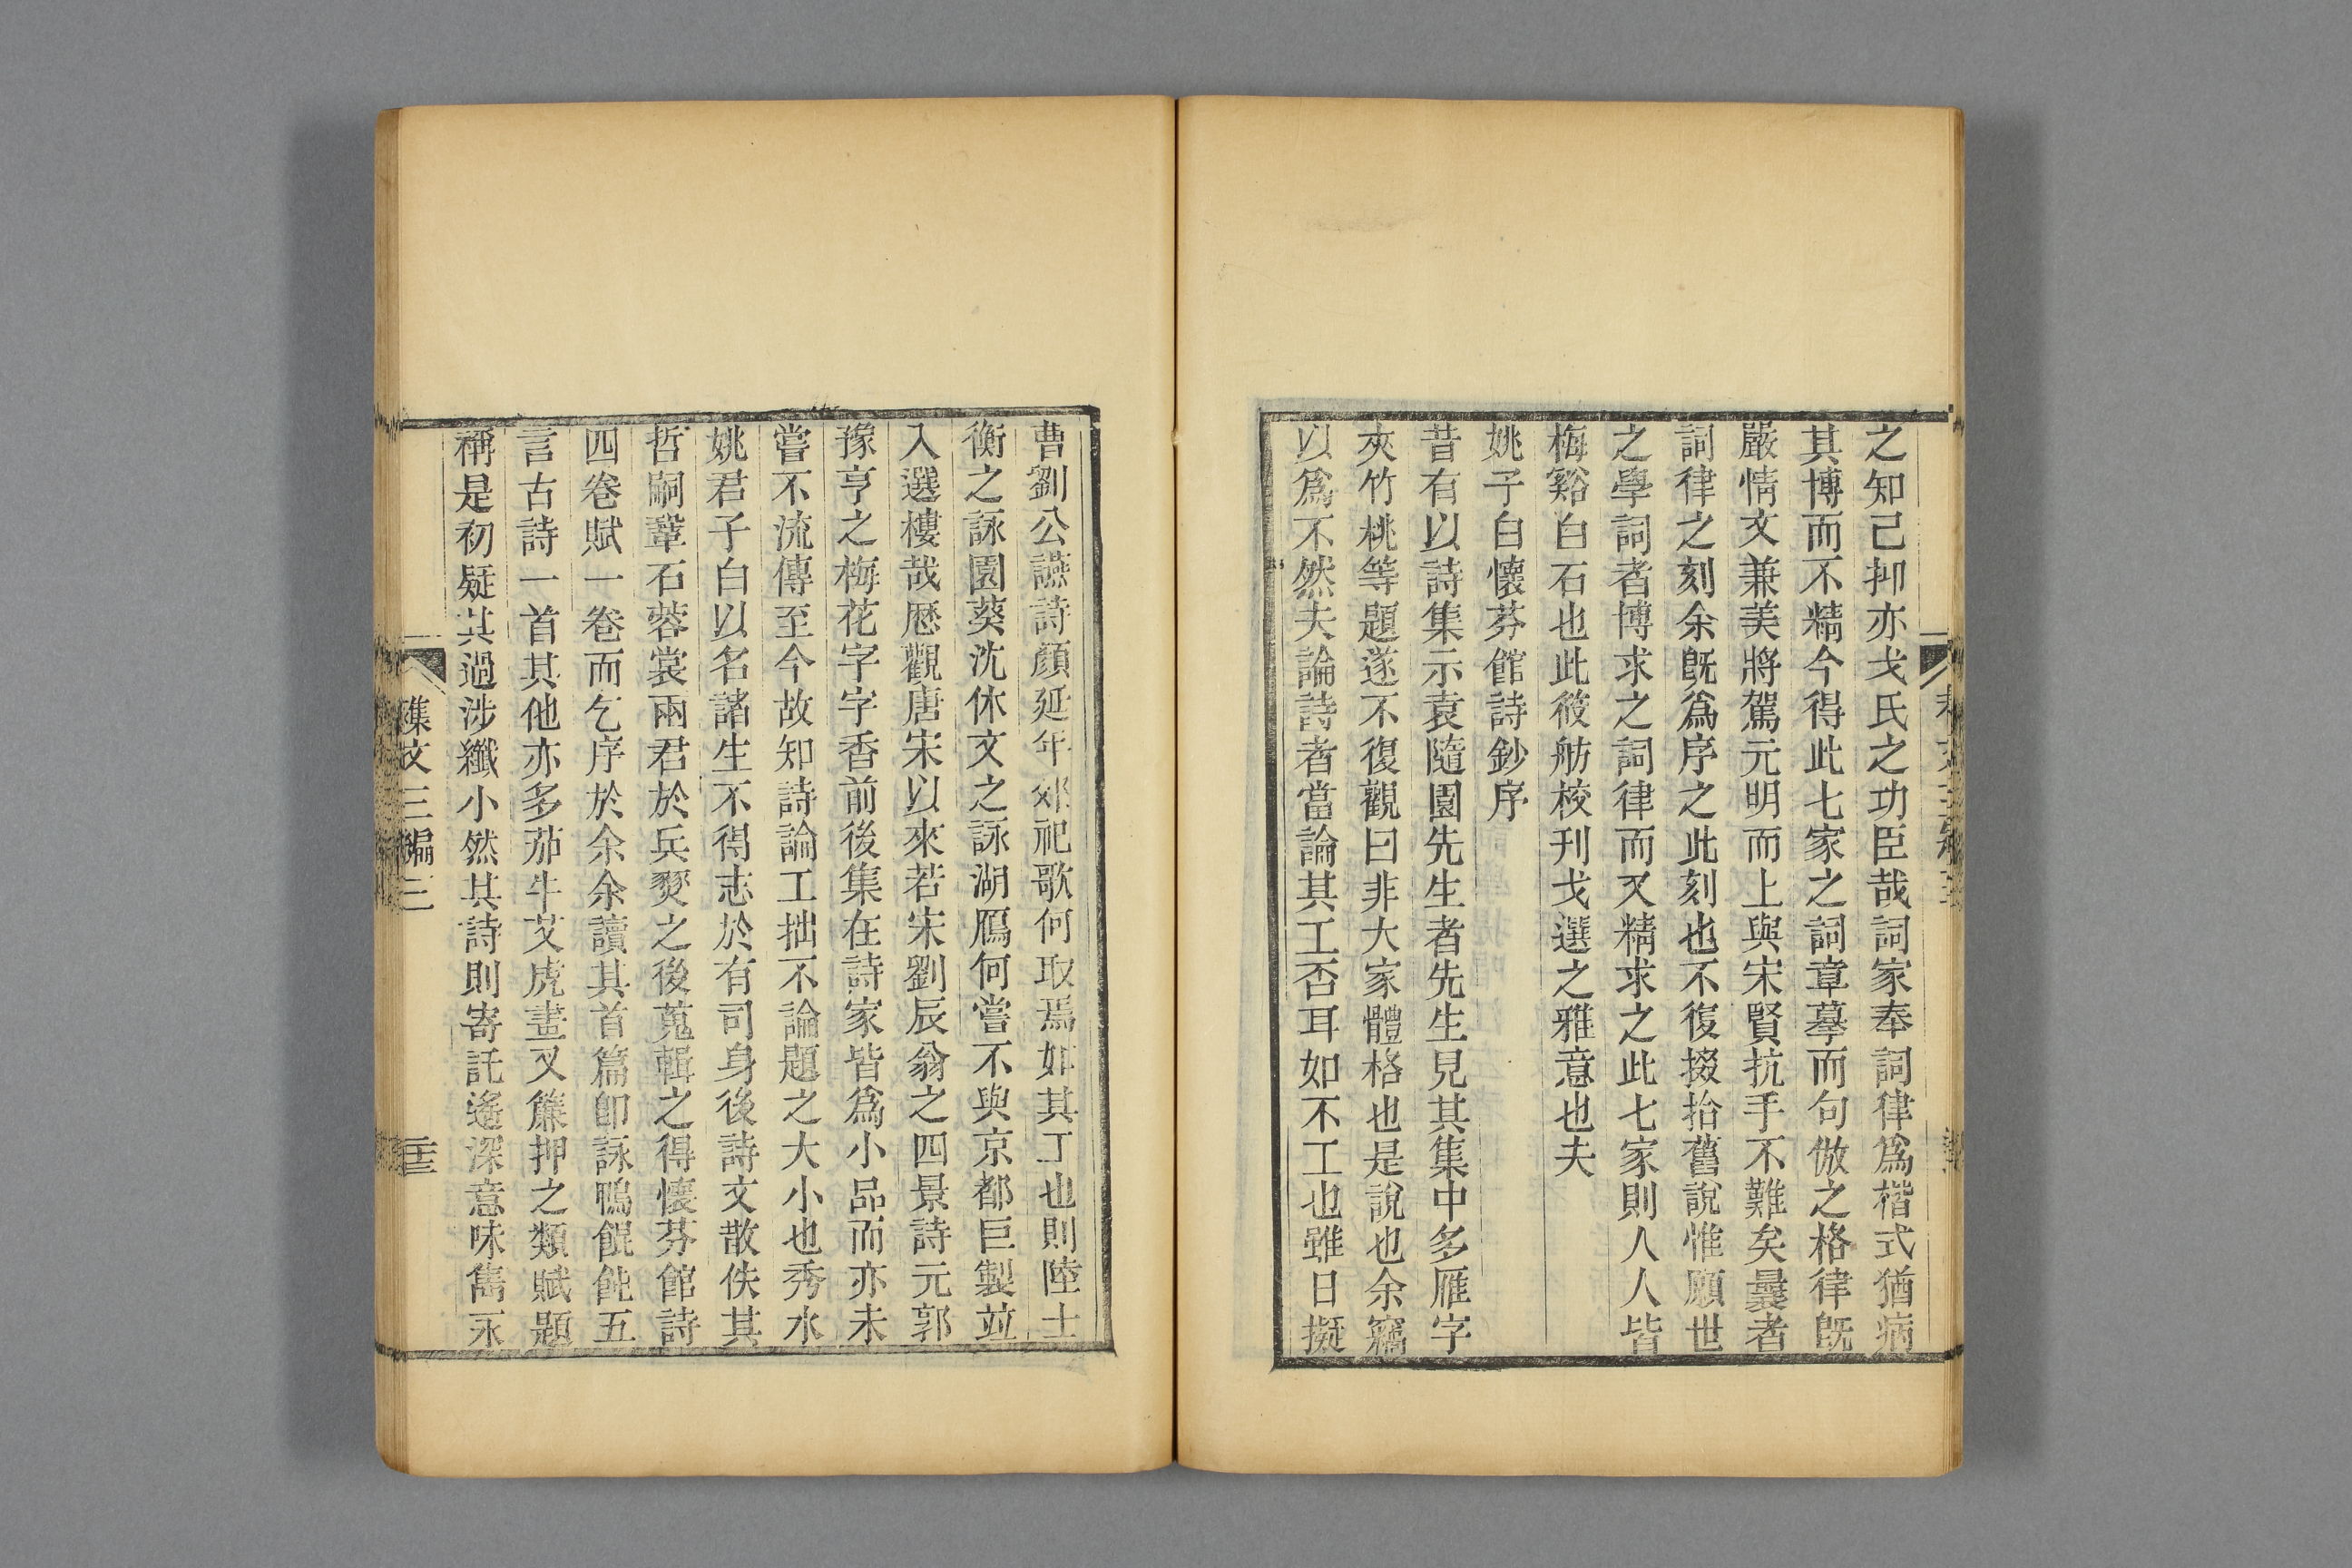 之知己抑亦戈氏之功臣哉詞家奉詞律爲楷式猶病
其博而不精今得此七家之詞章摹而句倣之格律旣
嚴情文兼美將駕元明而上與宋賢抗手不難矣曩者
詞律之刻余旣爲序之此刻也不復掇拾舊說惟願世
之學詞者博求之詞律而又精求之此七家則人人皆
梅谿白石也此筱舫校刊戈選之雅意也夫
姚子白懷芬館詩鈔序
昔有以詩集示袁隨園先生者先生見其集中多雁字
夾竹桃等題遂不復觀曰非大家體格也是說也余竊
以爲不然夫論詩者當論其工否耳如不工也雖日擬
曹劉公讌詩顏延年郊祀歌何取焉如其工也則陸士
衡之詠園葵沈休文之詠湖鴈何嘗不與京都巨製竝
入選樓哉歷觀唐宋以來若宋劉辰翁之四景詩元郭
豫亨之梅花字字香前後集在詩家皆爲小品而亦未
嘗不流傳至今故知詩論工拙不論題之大小也秀水
姚君子白以名諸生不得志於有司身後詩文散佚其
哲嗣蓽石蓉裳兩君於兵燹之後蒐輯之得懷芬館詩
四卷賦一卷而乞序於余余讀其首篇卽詠鴨餛飩五
言古詩一首其他亦多茄牛艾虎畫叉簾押之類賦題
稱是初疑其過涉纖小然其詩則寄託遙深意味雋永
雜文三編三
二十三